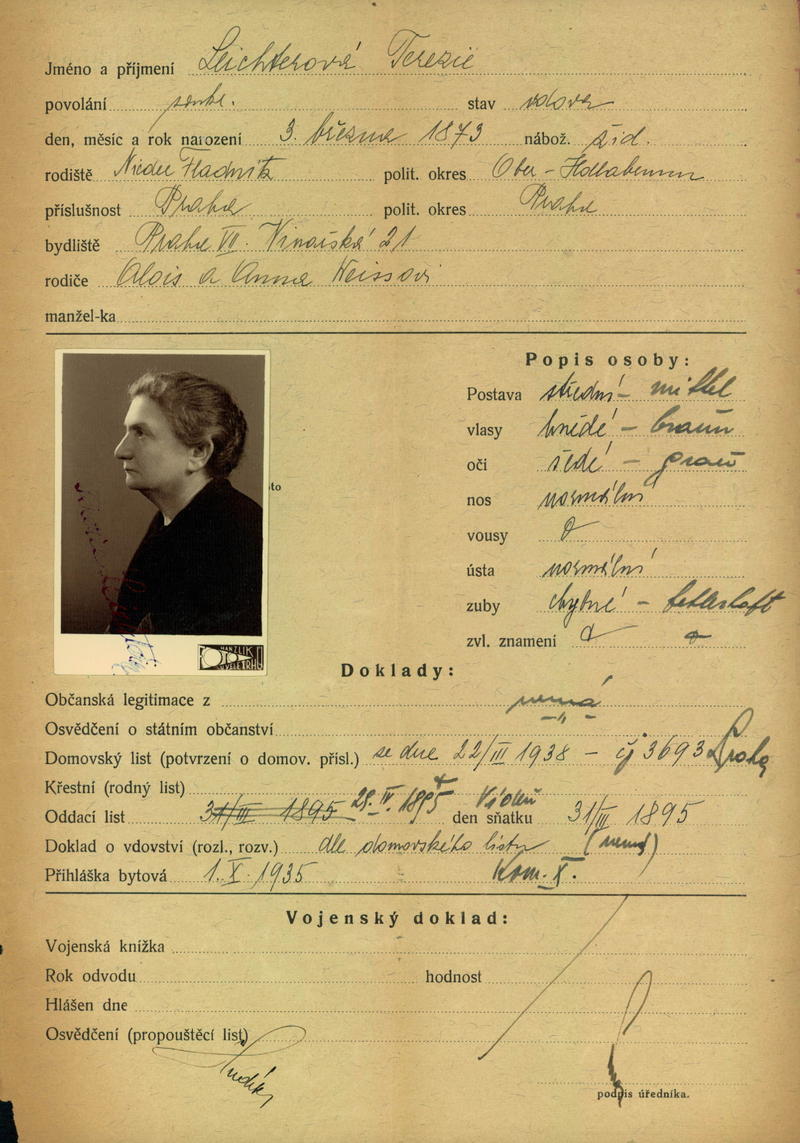 Jméno a příjmení Leichterová Terezie
povolání soukr. stav vdova
den, měsíc a rok narození 3. března 1873 nábož. žid.
rodiště Nieder Fladnitz polit. okres Ober-Hollabrunn
příslušnost Praha polit. okres Praha
bydliště Praha VII. Vinařská 21
rodiče Alois a Anna Weissovi
manžel-ka
Popis osoby:
Postava střední - mittel
vlasy hnědé - braun
oči šedé - grau
to
nos normální
vousy
ústa normální
zuby chybné -
zvl. znamení
MANZLIK
Doklady:
Občanská legitimace z nemá
Osvědčení o státním občanství -"-
Domovský list (potvrzení o domov. přísl.) ze dne 22/III 1938 - čj 3693 Praha
Křestní (rodný list)
Oddací list 31/III 1895 28. IV. 1895 den sňatku 31/III 1895
Doklad o vdovství (rozl., rozv.) dle domovského listu (nemá)
Přihláška bytová 1. X. 1935 Kom. X.
Vojenský doklad:
Vojenská knížka
Rok odvodu hodnost
Hlášen dne
Osvědčení (propouštěcí list)
podpis úředníka.